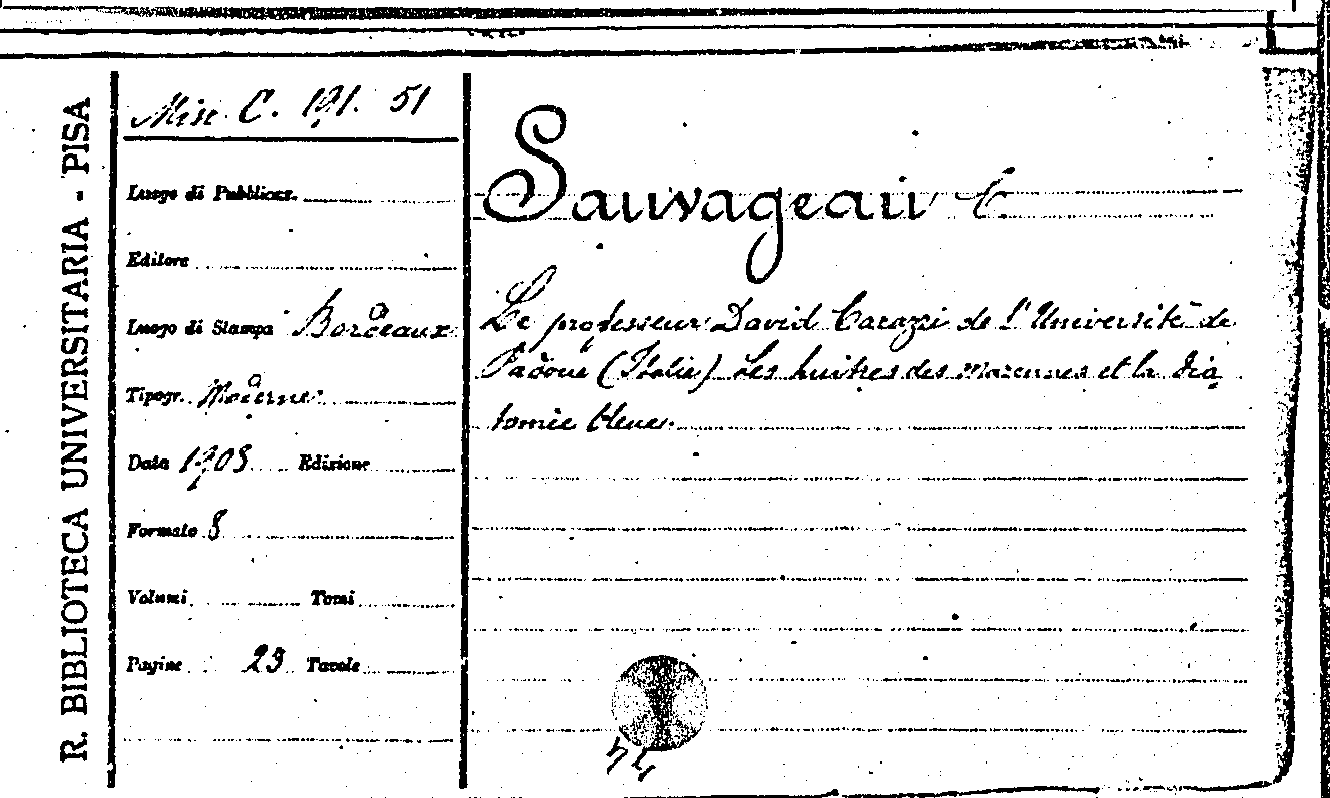 R. BIBLIOTECA UNIVERSITARIA - PISA
Misc. C. 191. 51
Luogo di Pubblicaz.
Editore
Luogo di Stampa Bordeaux
Tipogr. Moderne
Data 1908 Edizione
Formato 8
Volumi Tomi
Pagine 23 Tavole
Sauvageau C.
Le professeur David Carazzi de l'Université de
Padoue (Italie) Les huîtres des Marennes et la dia
tomée bleue.
44